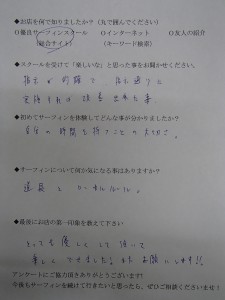 ◆お店を何で知りましたか?(丸で囲んでください)
○優良サーフィンスクール ○インターネット ○友人の紹介
(総合サイト) (キーワード検索)
◆スクールを受けて「楽しいな」と思った事をお聞かせください。
指示が的確で 指示通りに
実行すれば 改善 出来た事
◆初めてサーフィンを体験してどんな事が分かりましたか?
自分の時間を持つことの大切さ。
◆サーフィンについて何か気になる事はありますか?
道具と ローカルルール。
◆最後にお店の第一印象を教えて下さい
とっても優しくして頂いて
楽しくできました!またお願いします!!
アンケートにご協力頂きありがとうございます!
今後もサーフィンを続けて行きたいと思ったら、ぜひご相談くださいませ!